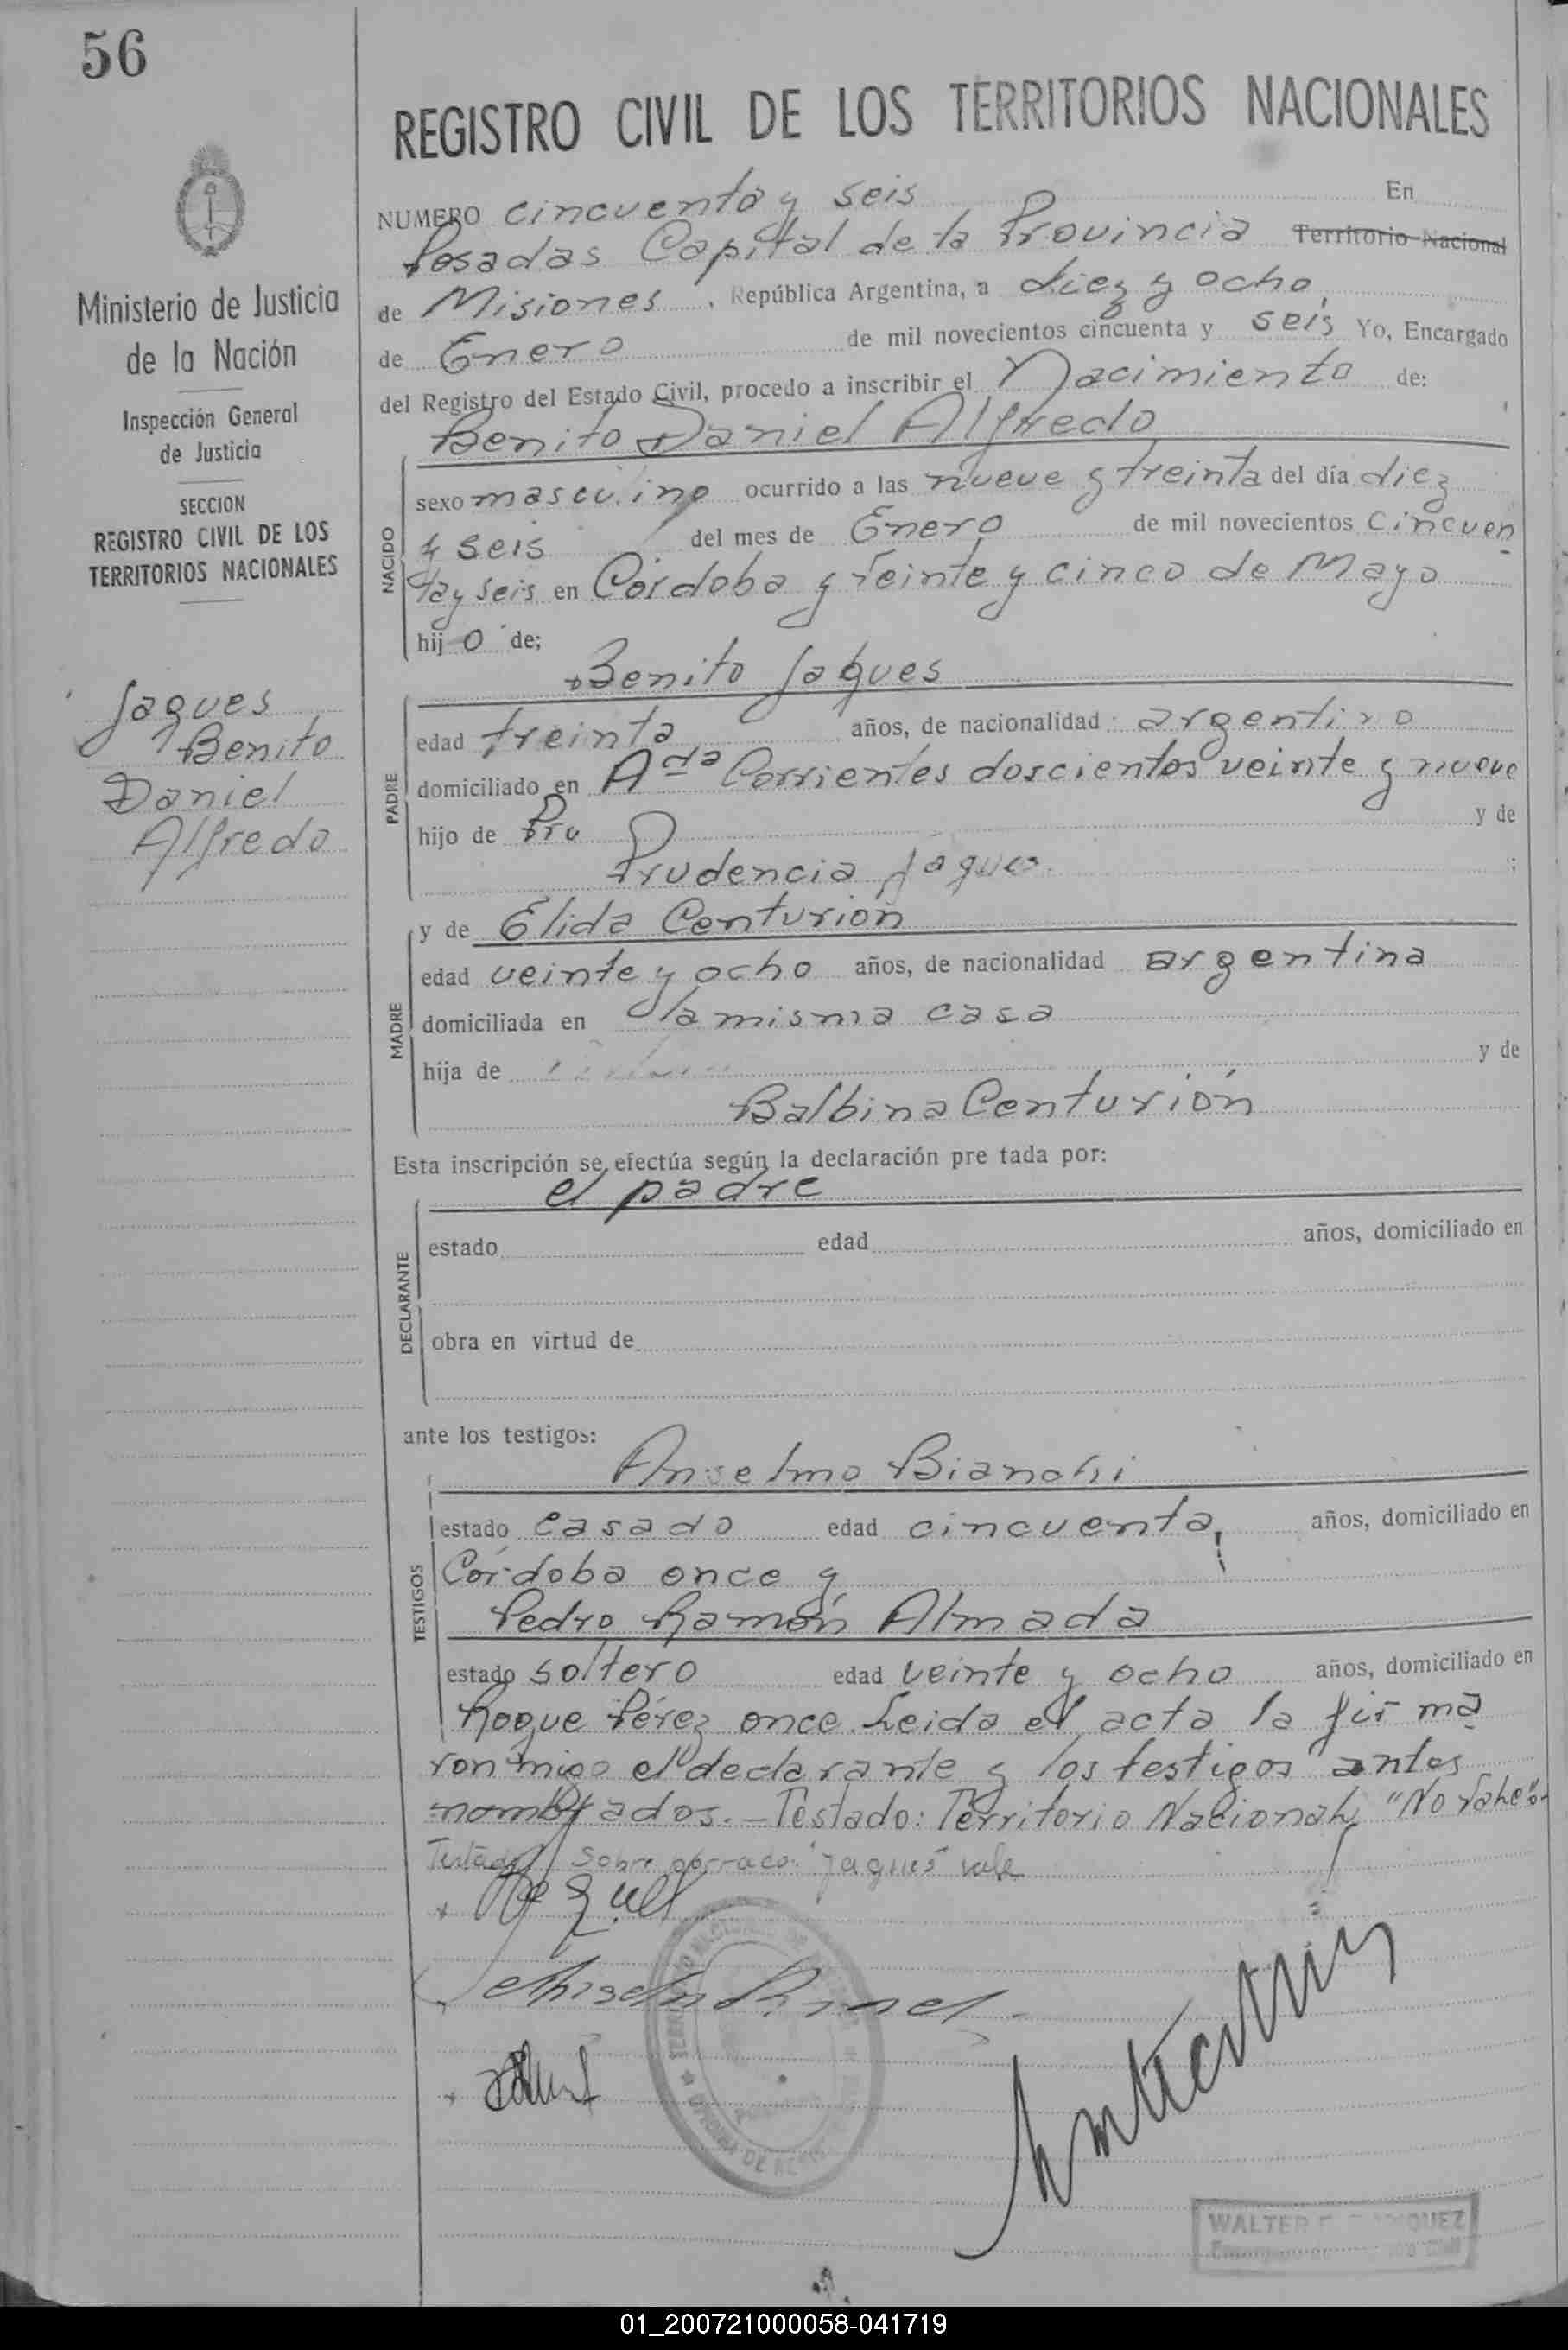 56
REGISTRO CIVIL DE LOS TERRITORIOS NACIONALES
Ministerio de Justicia
de la Nación
Inspección General
de Justicia
SECCION
REGISTRO CIVIL DE LOS
TERRITORIOS NACIONALES
Jaques
Benito
Daniel
Alfredo
NUMERO cincuenta y seis En
Posadas Capital de la Provincia Territorio Nacional
de Misiones, República Argentina, a diez y ocho,
de Enero de mil novecientos cincuenta y seis Yo, Encargado
del Registro del Estado Civil, procedo a inscribir el Nacimiento de:
Benito Daniel Alfredo
NACIDO
sexo masculino ocurrido a las nueve y treinta del día diez
y seis del mes de Enero de mil novecientos cincuen
ta y seis en Córdoba y Veinte y cinco de Mayo
hijo de;
Benito Jaques
PADRE
edad treinta años, de nacionalidad argentino
domiciliado en Ada Corrientes doscientos veinte y nueve
hijo de Pru y de
Prudencia Jaques
MADRE
y de Elida Centurión
edad veinte y ocho años, de nacionalidad argentina
domiciliada en la misma casa
hija de y de
Balbina Centurión
Esta inscripción se efectúa según la declaración pre tada por:
el padre
DECLARANTE
estado edad años, domiciliado en
obra en virtud de
ante los testigos:
Anselmo Bianchi
TESTIGOS
estado casado edad cincuenta, años, domiciliado en
Córdoba once y
Pedro Ramón Almada
estado soltero edad veinte y ocho años, domiciliado en
Roque Pérez once. Leida el acta la firma
ron migo el declarante y los testigos antes
nombrados.- Testado: Territorio Nacional, "No Vale".-
Testado Sobre borrado: "Jaques" vale
WALTER
01_200721000058-041719